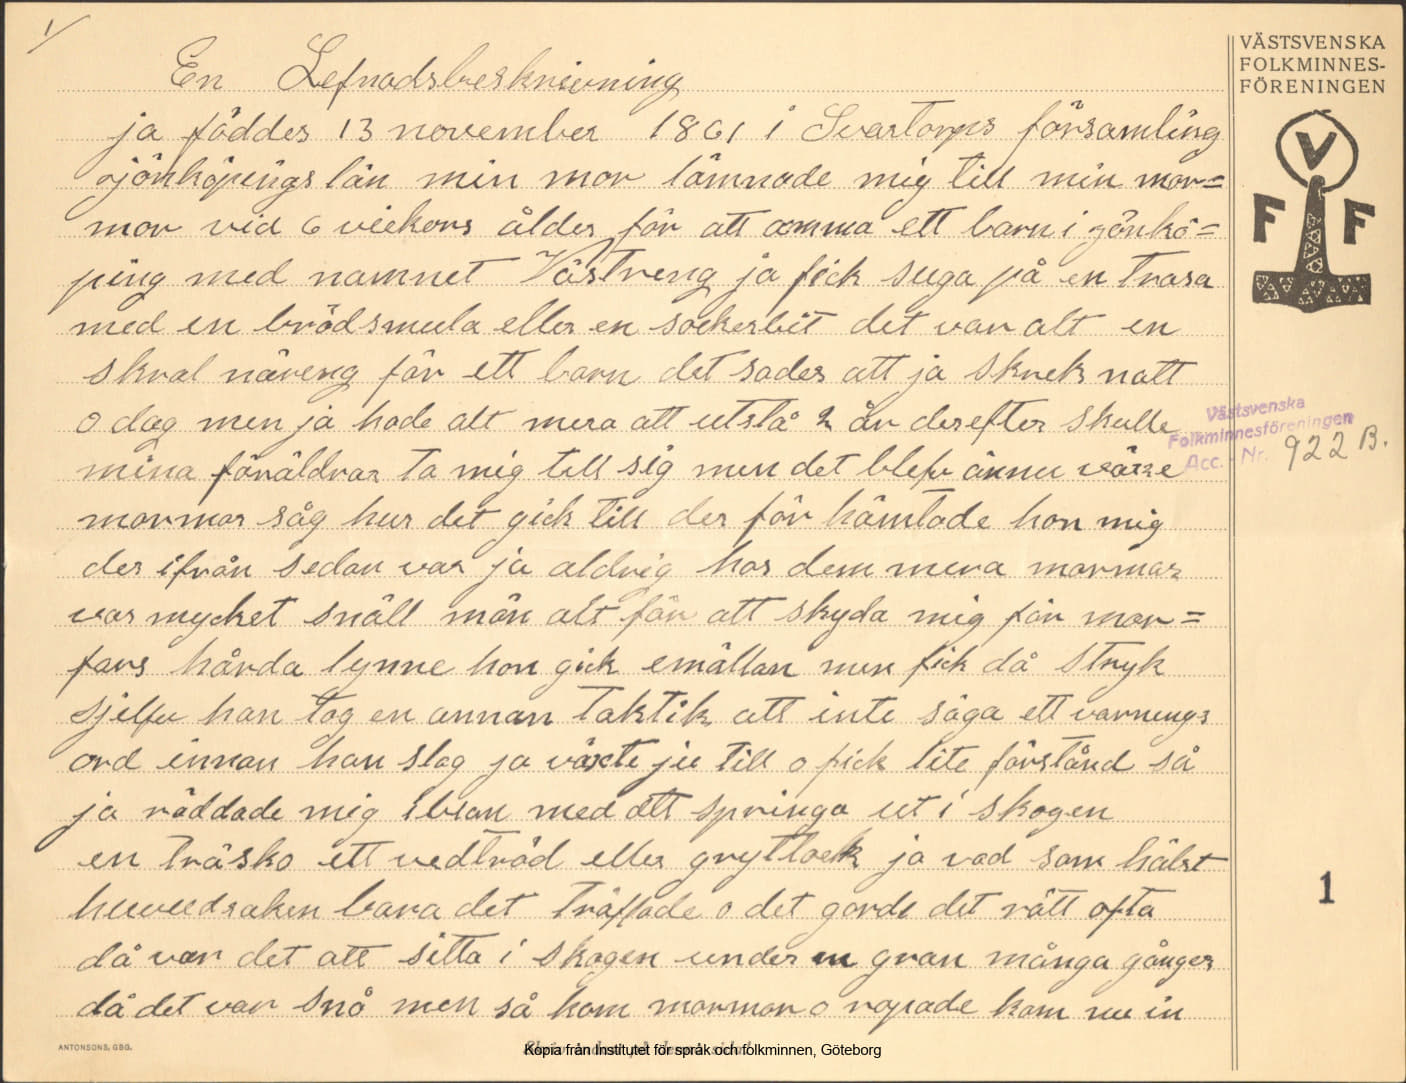 1/
En Lefnadsbeskrivning
ja föddes 13 november 1861 i Svartorps församling
Jönköpings län min mor lämnade mig till min mor=
mor vid 6 veckors ålder för att amma ett barn i jönkö=
ping med namnet Västreng ja fick suga på en trasa
med en brödsmula eller en sockerbit det var alt en
skral näreng för ett barn det sades att ja skrek natt
o dag men ja hade alt mera att utstå 2 år derefter skulle
mina föräldrar ta mig till sig men det blefv ännu värre
mormor såg hur det gick till der för hämtade hon mig
der ifrån sedan var ja aldrig hos dem mera mormor
var mycket snäll mon alt för att skyda mig för mor=
fars hårda lynne hon gick emällan men fick då stryk
sjelfv han tog en annan taktik att inte säga ett varnings
ord innan han slog ja växte ju till o fick lite förstånd så
ja räddade mig ibland med att springa ut i skogen
en träsko ett vedträd eller gryttlock ja vad som hälst
huvudsaken bara det träffade o det gorde det rätt ofta
då var det att sitta i skogen under en gran många gånger
då det var snö men så kom mormor o ropade kom nu in
VÄSTSVENSKA
FOLKMINNES-
FÖRENINGEN
V
F F
Västsvenska
Folkminnesföreningen
Acc. - Nr. 922 B.
1
ANTONSONS, GBG.
Kopia från Institutet för språk och folkminnen, Göteborg